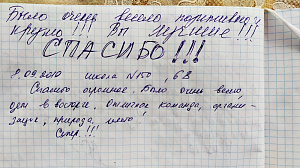 Было очень весело, позитивно,
круто!!! Вы лучшие!!!
СПАСИБО!!!
школа №50, 6В
Спасибо огромное. Было очень весело,
дети в восторге. Отличная команда, органи-
зация, природа,
Супер!!!